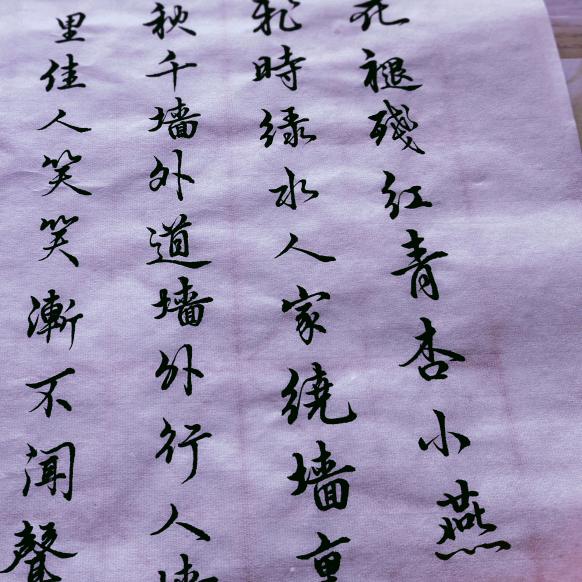 花褪殘红青杏小燕
飛時绿水人家繞墙
秋千墙外道墙外行人墙
里佳人笑笑漸不聞聲